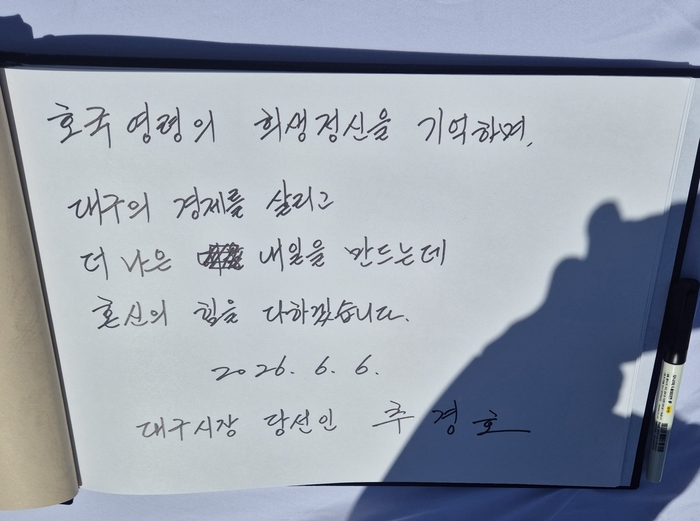 호국영령의 희생정신을 기억하며,
대구의 경제를 살리고
더 나은 내일을 만드는데
혼신의 힘을 다하겠습니다.
2026. 6. 6.
대구시장 당선인 추경호